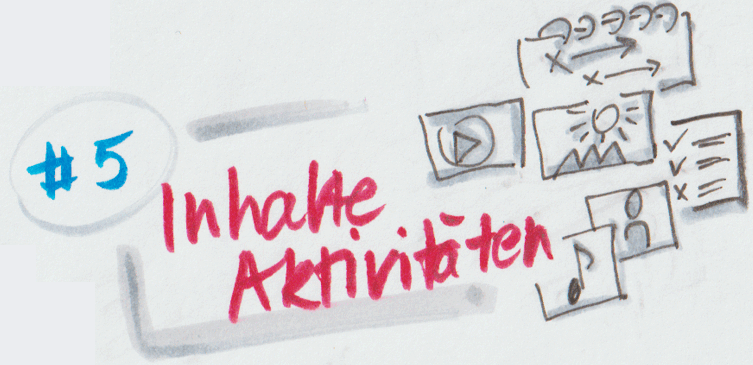 #5
Inhalte
Aktivitäten